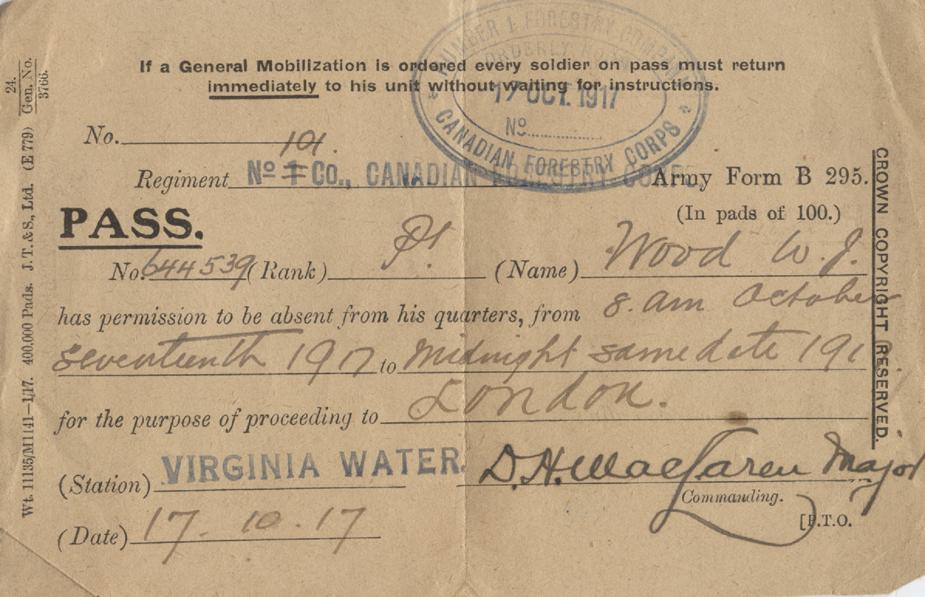 If a General Mobilization is ordered every soldier on pass must return
immediately to his unit without waiting for instructions.
NUMBER 1 FORESTRY COMPANY
ORDERLY ROOM
17 OCT. 1917
Nº
CANADIAN FORESTRY CORPS
No. 101.
Regiment Nº 1 Co., CANADIAN FORESTRY CORPS
Army Form B 295.
(In pads of 100.)
PASS.
No. 644539 (Rank) Pt. (Name) Wood W. J.
has permission to be absent from his quarters, from 8. am October
seventeenth 1917 to Midnight same date 191
for the purpose of proceeding to London.
(Station) VIRGINIA WATER. D. H. MacLaren Major
Commanding.
(Date) 17. 10. 17
[P.T.O.
CROWN COPYRIGHT RESERVED.
Wt. 11135/M1141—1/17. 400,000 Pads. J.T. & S., Ltd. (E 779) Gen. No.
3766.
24.